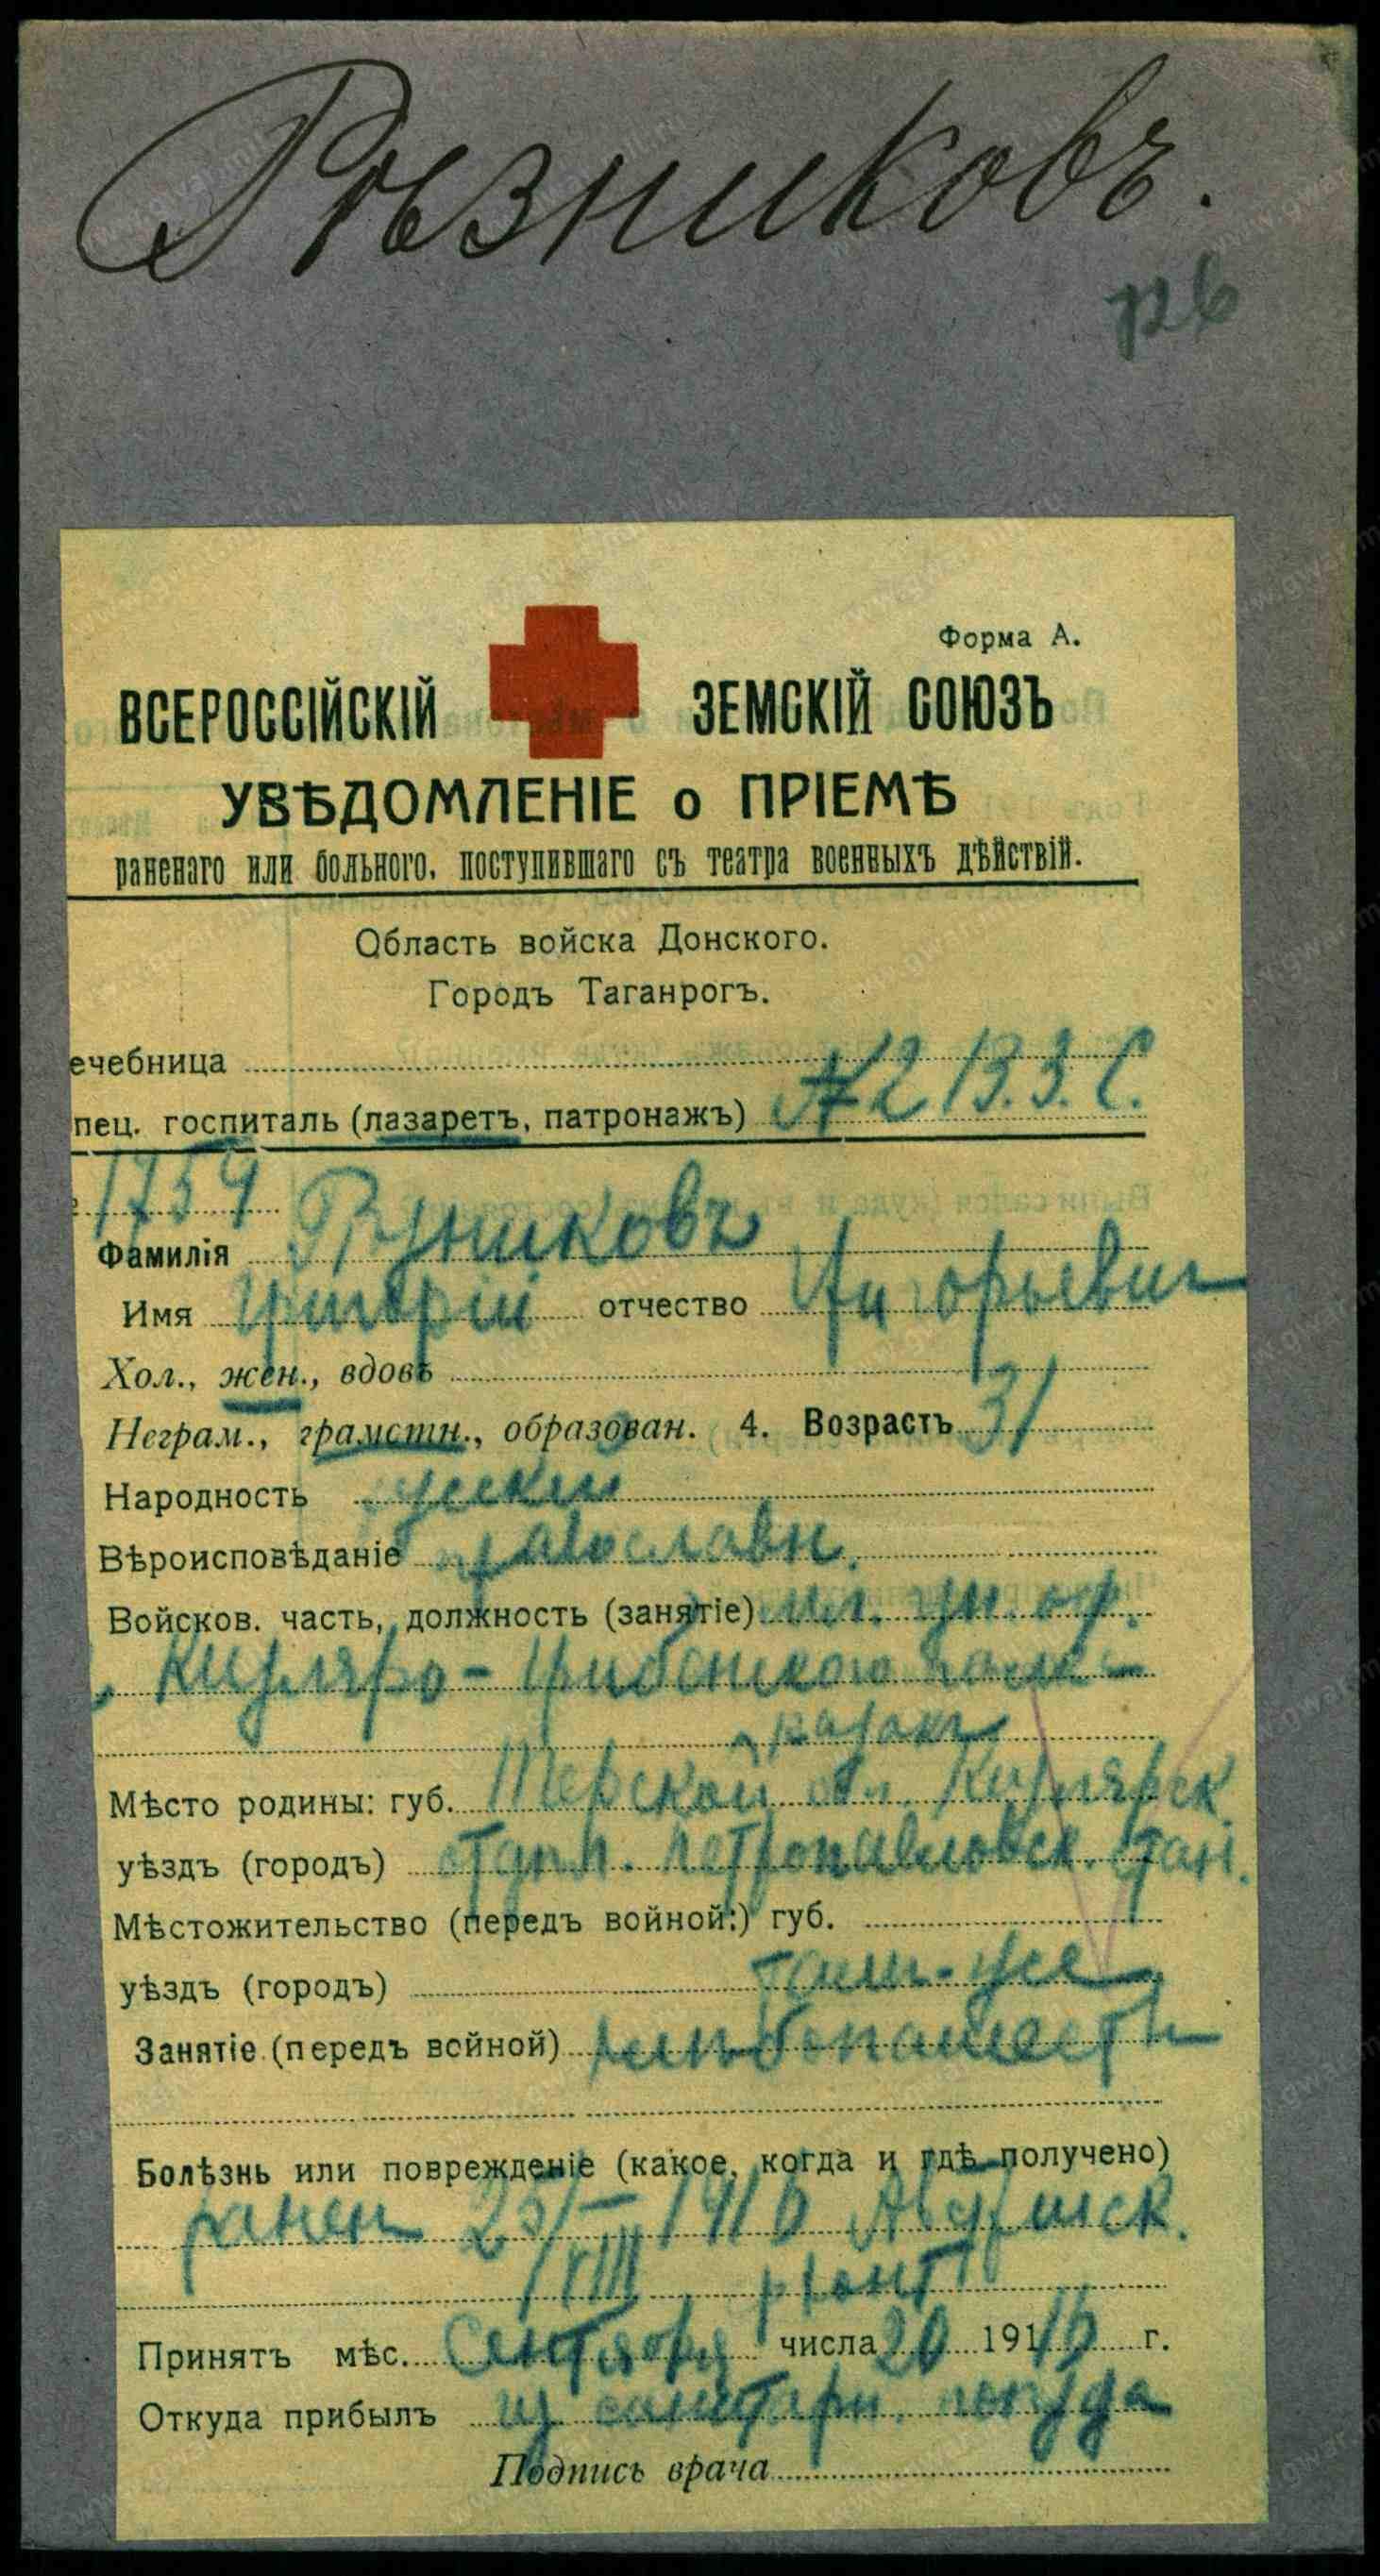 Рѣзниковъ.
Форма А.
ВСЕРОССІЙСКІЙ ЗЕМСКІЙ СОЮЗЪ
УВѢДОМЛЕНІЕ о ПРІЕМѢ
раненаго или больного, поступившаго съ театра военныхъ дѣйствій.
Область войска Донского.
Городъ Таганрогъ.
ечебница
пец. госпиталь (лазаретъ, патронажъ) № 2 В.З.С.
1754
Фамилія Рѣзниковъ
Имя Григорій отчество Григорьевич
Хол., жен., вдовъ
Неграм., грамотн., образован. 4. Возрастъ 31
Народность русский
Вѣроисповѣданіе православн.
Войсков. часть, должность (занятіе) мл. ун. оф.
Кизляро-Гребенского полка
казакъ
Мѣсто родины: губ. Терской обл. Кизлярск.
уѣздъ (городъ) отдѣл. Петропавловск. стан.
Мѣстожительство (передъ войной:) губ.
уѣздъ (городъ) тамъ-же
Занятіе (передъ войной) хлѣбопашест
Болѣзнь или поврежденіе (какое, когда и гдѣ получено)
ранен 25/VIII 1916
фронт
Принятъ мѣс. Сентября числа 20 1916 г.
Откуда прибылъ из санитарн. поезда
Подпись врача